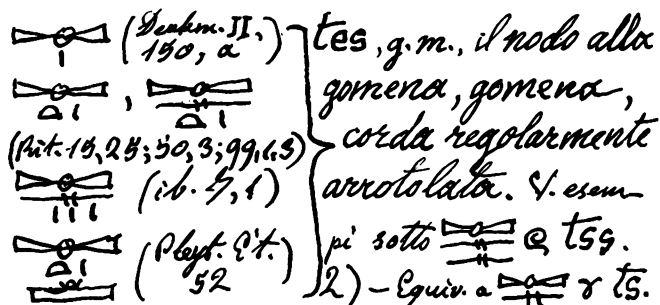 (Denkm. II, 150, a)
(Rit. 15, 25; 50, 3; 99, 1. 3)
(ib. 7, 1)
(Pleyt. Ét. 52)
tes, g. m., il nodo alla
gomena, gomena,
corda regolarmente
arrotolata. V. esem-
pi sotto e tss.
2) – Equiv. a r ts.